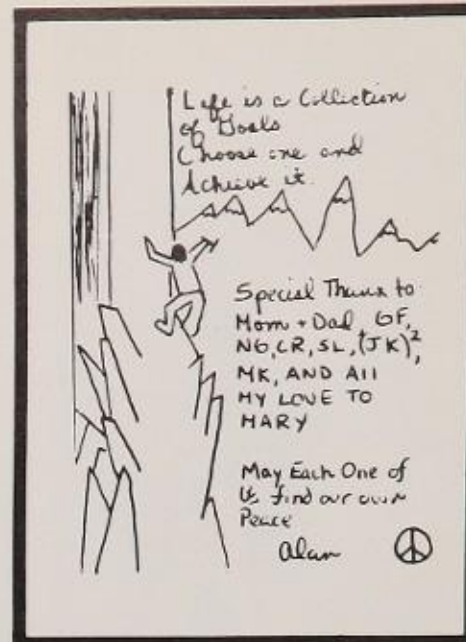 Life is a Collection
of Goals
Choose one and
Achieve it.
Special Thanx to
Mom + Dad, GF,
NG, CR, SL, (JK)²,
MK, AND All
MY LOVE TO
MARY
May Each One of
Us find our own
Peace
Alan